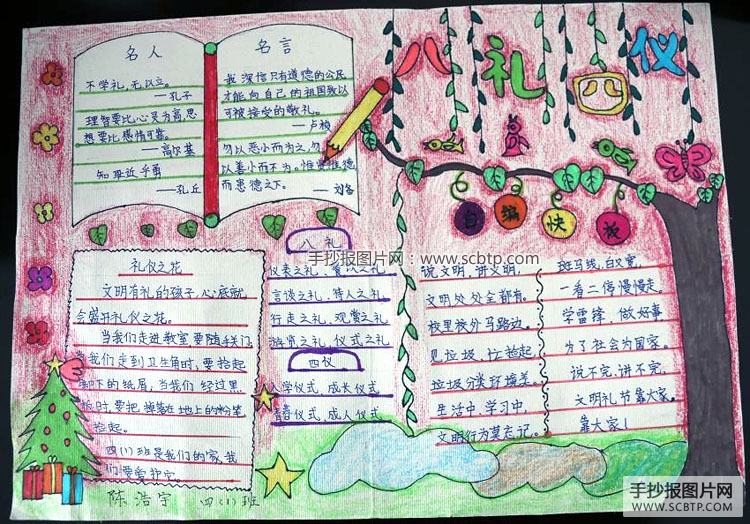 名人
不学礼,无以立。
——孔子
理智要比心灵为高,思
想要比感情可靠。
——高尔基
知耻近乎勇
——孔丘
名言
我深信只有道德的公民
才能向自己的祖国致以
可被接受的敬礼。
——卢梭
勿以恶小而为之,勿
以善小而不为。惟贤惟德
而患德之下。
——刘备
八礼四仪
自编快板
手抄报图片网:www.scbtp.com
礼仪之花
文明有礼的孩子,心底就
会盛开礼仪之花。
当我们走进教室要随手关门
当我们走到卫生角时,要拾起
脚下的纸屑,当我们经过黑
板时,要把掉落在地上的粉笔
拾起。
四(1)班是我们的家,我
们要爱护它。
八礼
仪表之礼、餐饮之礼
言谈之礼、待人之礼
行走之礼、观赏之礼
游览之礼、仪式之礼
四仪
入学仪式、成长仪式
青春仪式、成人仪式
说文明,讲文明,
文明处处全都有。
校里校外马路边。
见垃圾,忙拾起,
垃圾分类环境美。
生活中,学习中,
文明行为莫忘记。
斑马线,白又宽,
一看二停慢慢走。
学雷锋,做好事
为了社会为国家。
说不完,讲不完,
文明礼节靠大家。
靠大家!
陈浩宇 四(1)班
手抄报图片网
WWW.SCBTP.COM